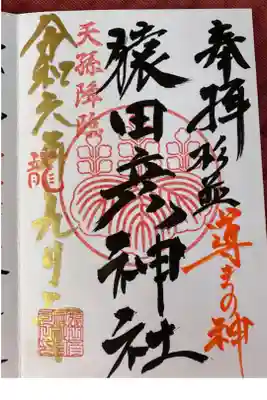 奉拝
杉並
導きの神
猿田彦神社
天孫降臨
龍
令和六年九月